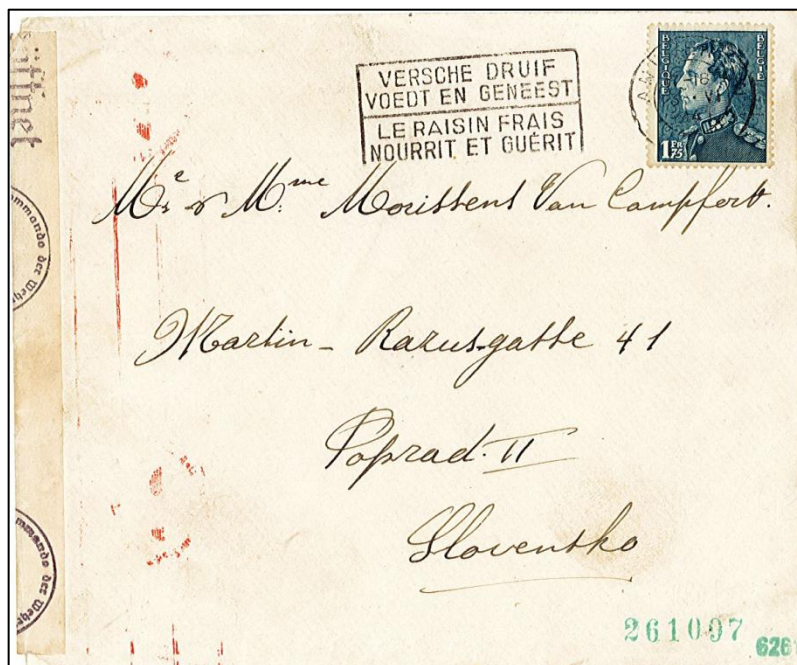 VERSCHE DRUIF
VOEDT EN GENEEST
LE RAISIN FRAIS
NOURRIT ET GUÉRIT
BELGIQUE
BELGIE
1 FR 75
Mr & Mme Morissens Van Campfort.
Martin - Razusgatte 41
Poprad. II
Slovensko
261097
6261
ommando der Weh
mmando der Weh